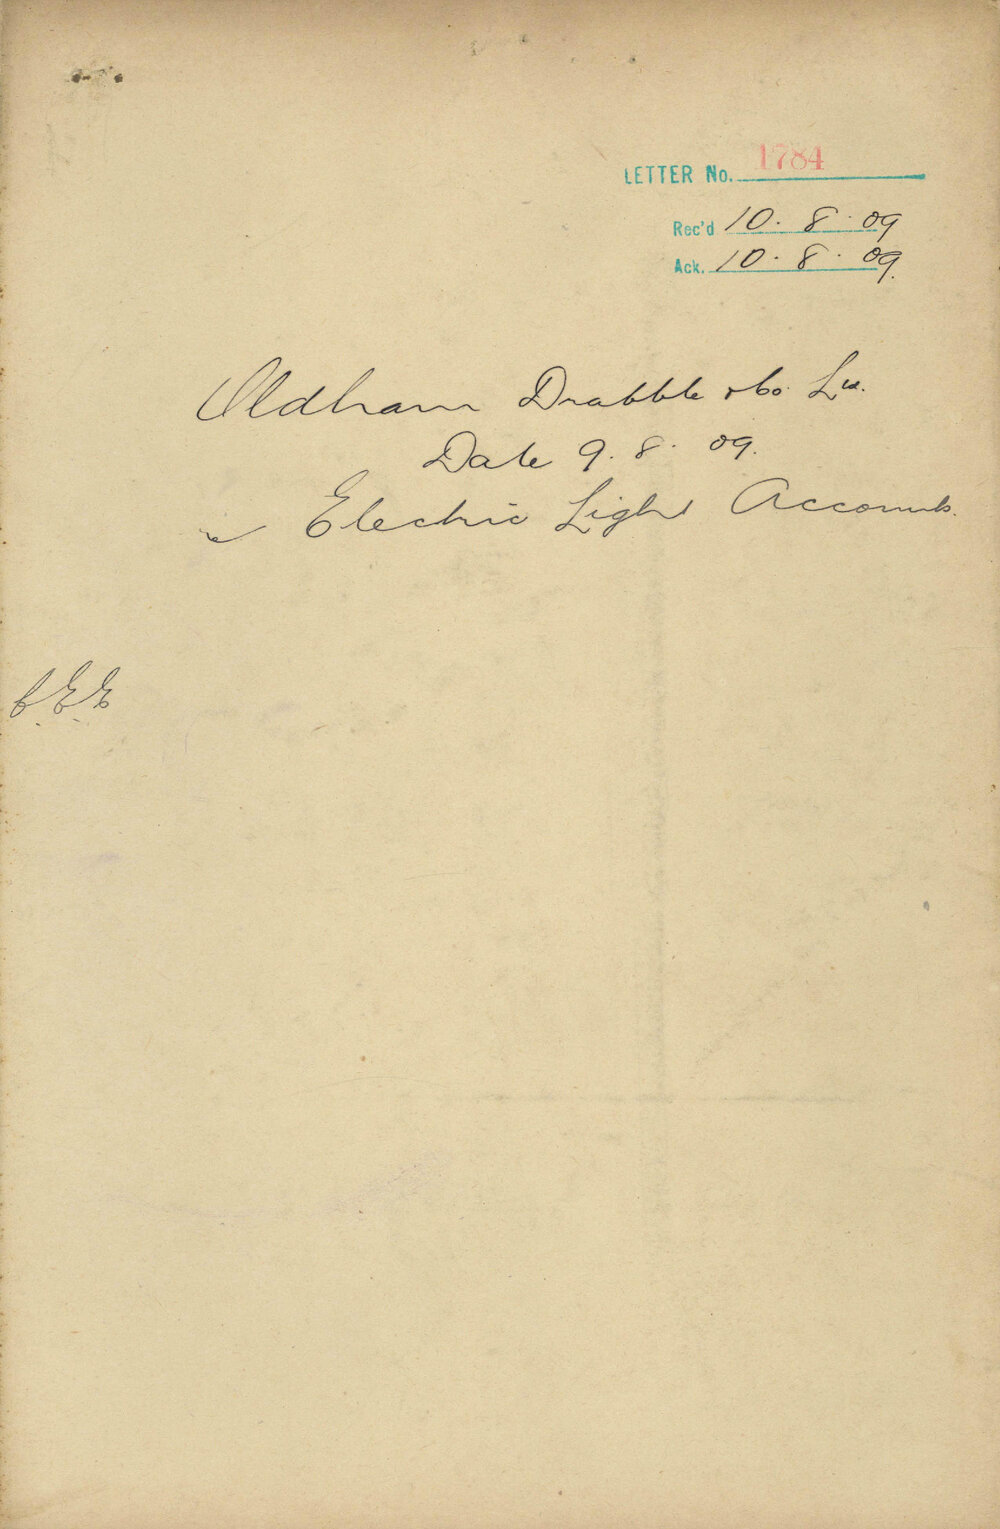 LETTER No. 1784
Rec'd 10. 8. 09
Ack. 10. 8. 09.
Oldham Drabble & Co Ld.
Date 9. 8. 09.
re Electric Light Accounts.
C.E.E